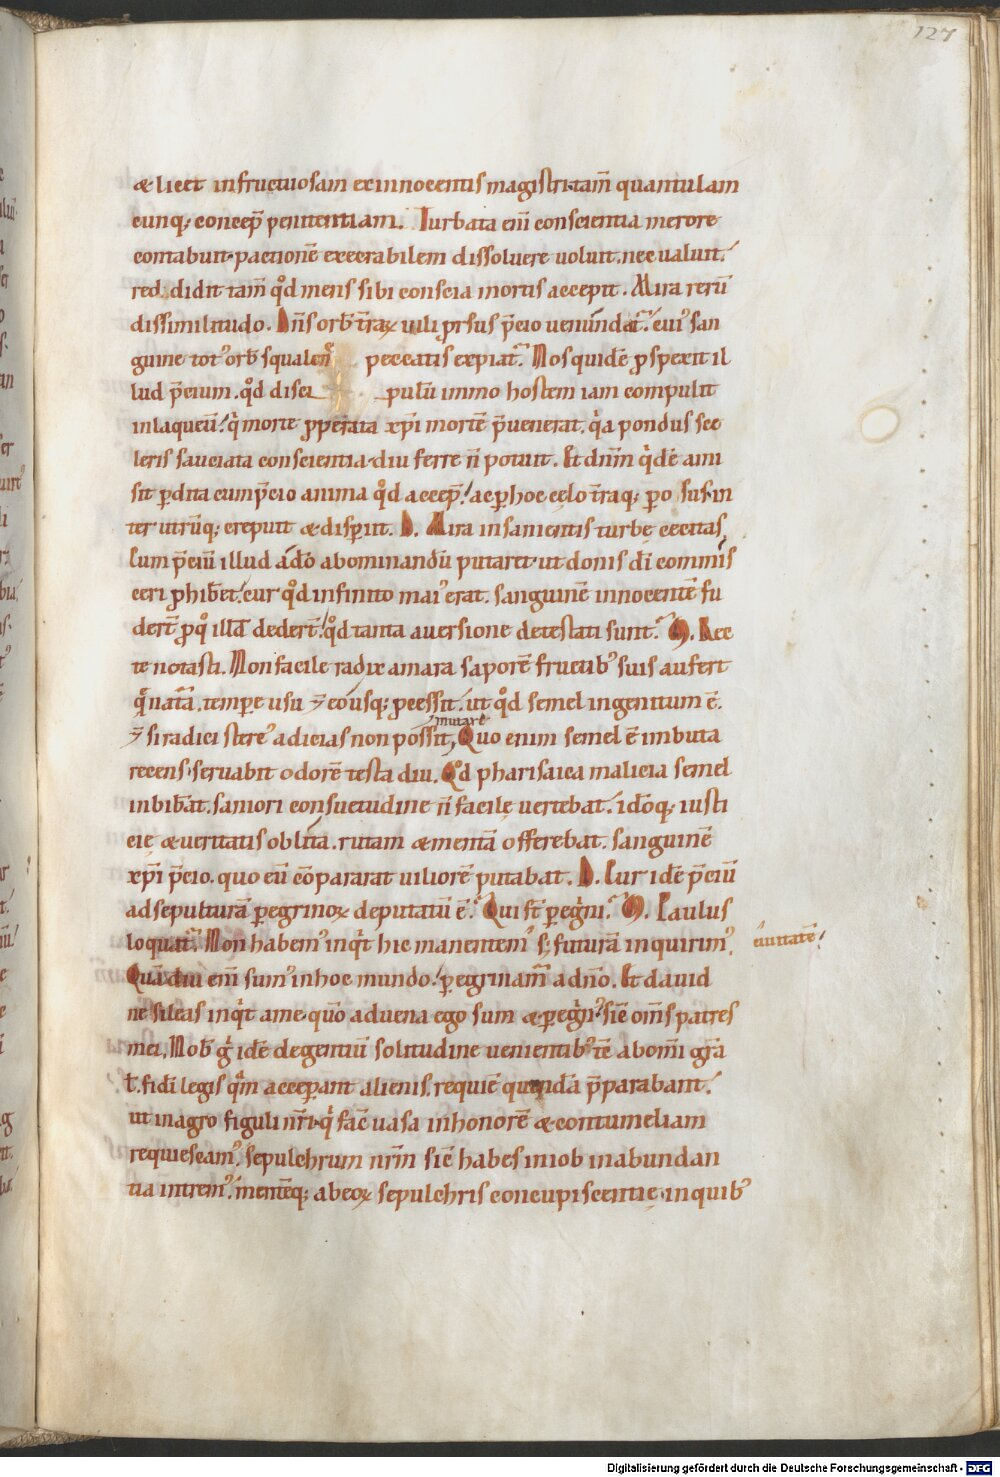 127
& licet infructuosam ex innocentis magistri· tam̄ quantulam
cunq; concep̄ penitentiam. Turbata eni̅ conscientia merore
contabuit· pactionē execrabilem dissoluere uoluit. nec ualuit.
red. didit tam̄ qͦd mens sibi conscia mortis accepit. Mira rerū
dissimilitudo. Dn̄s orb̄ t̄raꝝ uili ꝓrsus p̄cio uenundat᷒. cui᷒ san
guine tot᷒ orb̄ squalen peccatis expiat᷒. Nos quidē ꝓspexit il
lud p̄cium. qͦd disci pulū immo hostem iam compulit
in laqueū. qͥ morte ꝓperata xp̄i mortē p̄uenerat. qͥa pondus sce
leris sauciata conscientia· diu ferre n̄ potuit. Et dn̄m qͥdē ami
sit ꝑdita cum p̄cio anima qͦd accep̄. ac ꝑ hoc cęlo t̄raq; susp in
ter utrūq; crepuit & disꝑiit. D. Mira insanientis turbę cecitas.
Cum p̄ciū illud a dō abominandū putaret· ut donis dī commis
ceri ꝓhib̄et. cur qͦd infinito mai᷒ erat. sanguinē innocentē fu
dert̄ ꝓ qͦ illđ dedert̄. qͦd tanta auersione detestati sunt. M. Rec
te notasti. Non facile radix amara saporē fructib᷒ suis aufert
qͣ nata. tempe usu ⁊ eousq; ꝓcessit. ut qͦd semel ingenitum ē.
mutare
⁊ si radici stere᷒ adicias non possit, Quo enim semel ē imbuta
recens· seruabit odorē testa diu. Qͦd pharisaica malicia semel
inbib̄at. saniori consuetudine n̄ facilę vertebat. idōq; iusti
cię & ueritatis oblita. rutam & mentā offerebat. sanguinē
xp̄i p̄cio. quo eū cōpararat uiliorē putabat. D. Cur idē p̄ciū
ad sepulturā ꝑegrinoꝝ deputatū ē. Qui st̄ ꝑegͥni. M. Paulus
loquat᷒. Non habem᷒ inqͥt hic manentem᷒ s; futurā inquirim᷒.
ciuitatē
Quādiu eni̅ sum᷒ in hoc mundo. ꝑegrinam᷒ a dn̄o. Et dauid
ne sileas inqͥt a me· quō aduena ego sum & ꝑegͥn᷒ sic̄ om̄s patres
mei. Nob̄ gͥ idē de gentiū solitudine uenientib᷒ t̄ē abom̄i gr̄a
ł. fidi legis qͣm acceꝑant alienis. requiē quendā p̄parabant.
ut in agro figuli nr̄i· qͥ fac̄ uasa in honorē & contumeliam
requiescam᷒. sepulchrum nr̄m sic̄ habes in iob in abundan
tia intrem᷒. mentēq; ab eoꝝ sepulchris concupiscentię· in quib᷒
Digitalisierung gefördert durch die Deutsche Forschungsgemeinschaft - DFG